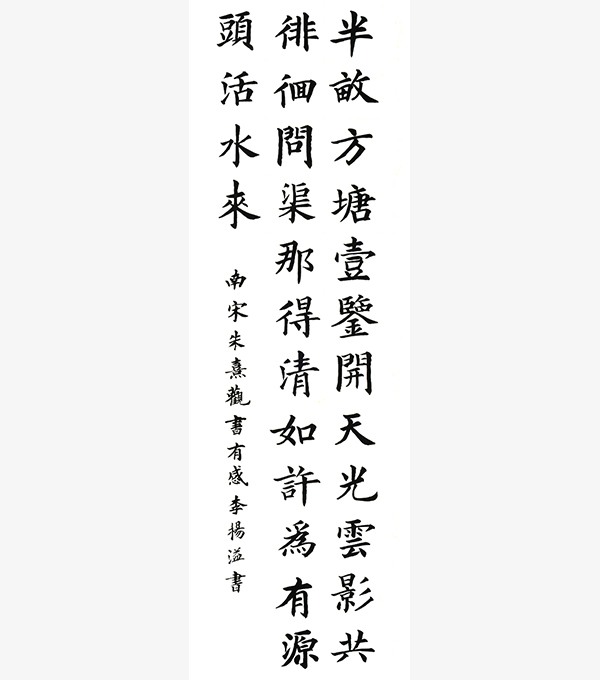 半畝方塘壹鑒開天光雲影共
徘徊問渠那得清如許為有源
頭活水來
南宋朱熹觀書有感李揚溢書